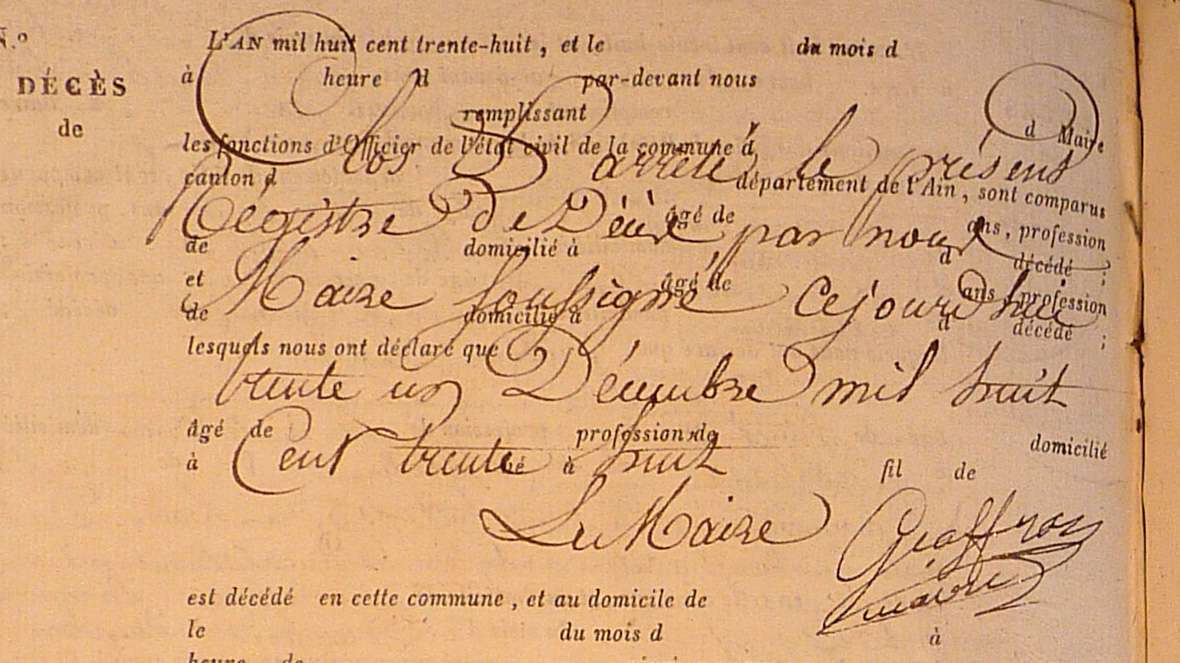 N.º
DÉCÈS
de
L'AN mil huit cent trente-huit, et le du mois d
à heure d par-devant nous
remplissant d Maire
les fonctions d'Officier de l'état civil de la commune d
Clos & arrêté le présent
canton d département de l'Ain, sont comparus
Registre de Décès par nous
âgé de ans, profession
de domicilié à d décédé ;
et âgé de ans, profession
Maire soussigné Cejourdhui
de domicilié à d décédé ;
lesquels nous ont déclaré que
trente un Décembre mil huit
âgé de profession de domicilié
à né à fil de
Cent trente huit
Le Maire Geoffroy
maire
est décédé en cette commune, et au domicile de
le du mois d à
heure de